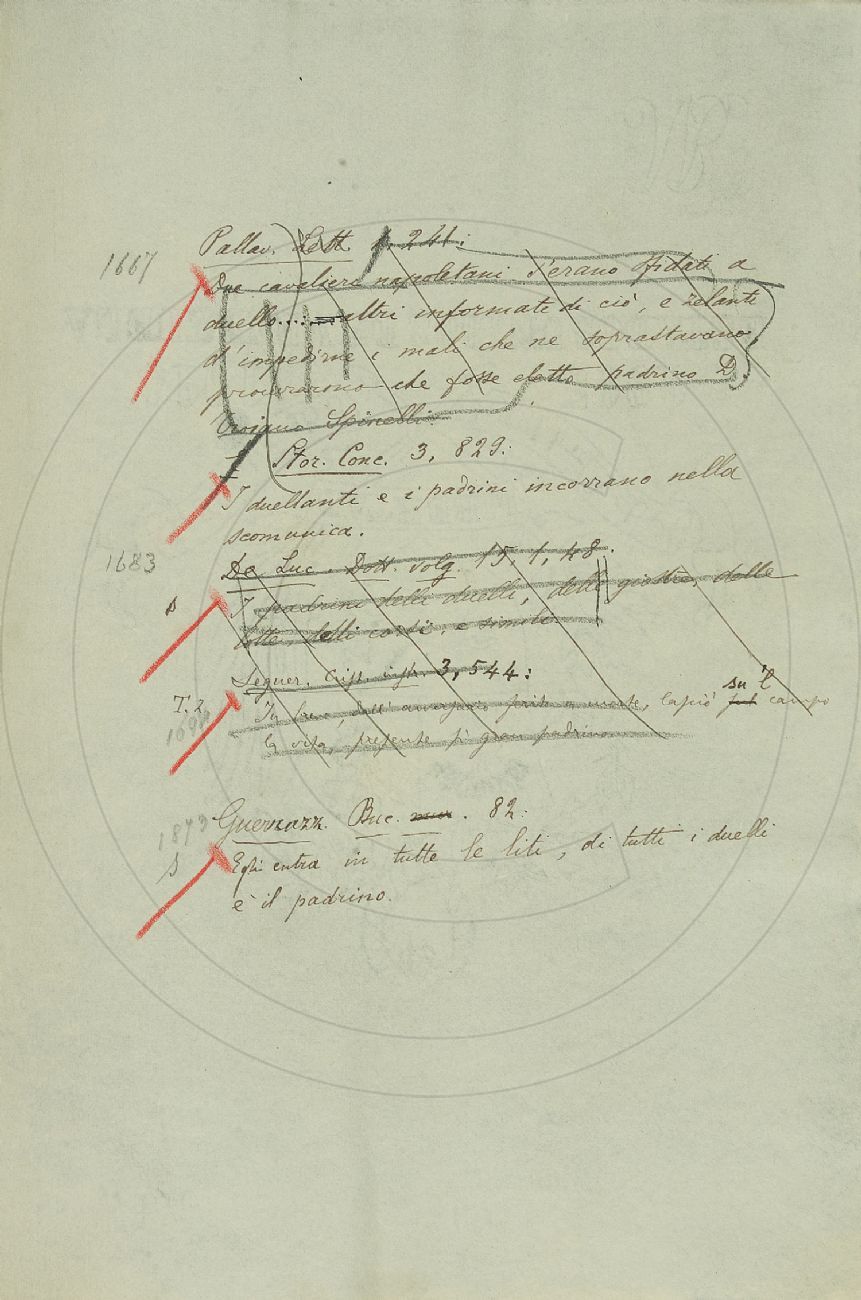 1667
Pallav. Lett. 1, 241:
Due cavalieri napoletani s'erano sfidati a
duello...... altri informati di ciò, e zelanti
d'impedirne i mali che ne soprastavano,
procurarono che fosse eletto padrino D.
Troiano Spinelli.
Stor. Conc. 3, 829:
I duellanti e i padrini incorrano nella
scomunica.
1683
De Luc. Dott. volg. 15, 1, 48.
S I padrini delli duelli, delle giostre, delle
lotte, delli corsi, e simili.
Segner. Crist. instr. 3, 544:
T. 2. In breve, dall'avversario ferito a morte, lasciò sul su 'l campo
la vita, presente sì gran padrino.
1873
Guerrazz. Buc. . 82:
S Egli entra in tutte le liti, di tutti i duelli
è il padrino.